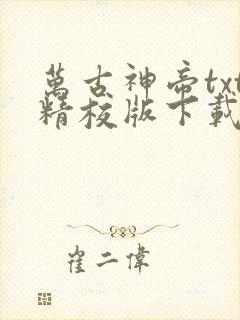 萬古神帝txt
精校版下載
崔二偉